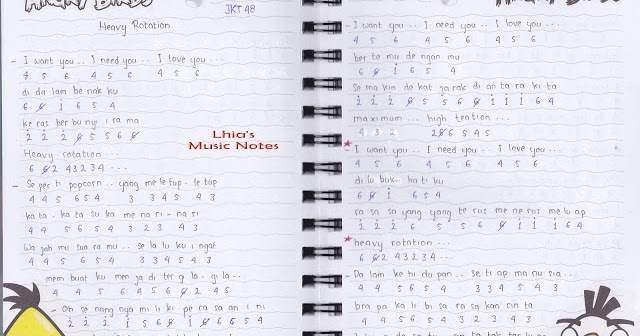 ANGRY BIRDS
JKT 48
Heavy Rotation
- I want you.. I need you.. I love you...
4 5 6 4 5 6 4 5 6
di da lam be nak ku
6 6̸ 1̇ 6 5 4
ke ras ber bu nyi i ra ma
2̇ 2̇ 2̇ 6̸ 5 5 6 6̸
Heavy rotation...
6 6̸ 2 43234 ...
- Se per ti popcorn.. yang me le tup - le tup
4 4 5 6 5 4 3 3 4 5 4 3
ka ta - ka ta su ka me na ri - na ri
4 4 5 6 5 4 3 2 3 4 3
Wa jah mu sua ra mu.. se la lu ku i ngat
4 4 5 6 5 4 3 3 4 5 4 3
mem buat ku men ja di ter gi la - gi la..
4 4 4 5 6 4 5 6 6̸ 2 4 5
- Oh se nang nya mi li ki pe ra sa an i ni
Lhia's
Music Notes
- I want you.. I need you.. I love you...
4 5 6 4 5 6 4 5 6
ber te mu de ngan mu
6 6̸ 1̇ 6 5 4
Se ma kin de kat ja rak di an ta ra ki ta
2̇ 2̇ 2̇ 6̸ 5 5 6 6̸ 1̇ 1̇ 1̇ 6 4
maximum... high tention...
4 3 2 2 6̸ 6 5 4 5
I want you.. I need you.. I love you...
4 5 6 4 5 6 4 5 6
di lu buk ha ti ku
6 6̸ 1̇ 6 5 4
ra sa sa yang yang te rus me ne rus me lu ap
heavy rotation...
6 6̸ 2 43234 ...
- Da lam ke hi du pan.. se ti ap ma nu sia...
4 4 5 6 5 4 3 3 4 5 4 3
bra pa ka li bi sa ra sa kan cin ta
4 4 5 6 5 4 3 2 3 4 3